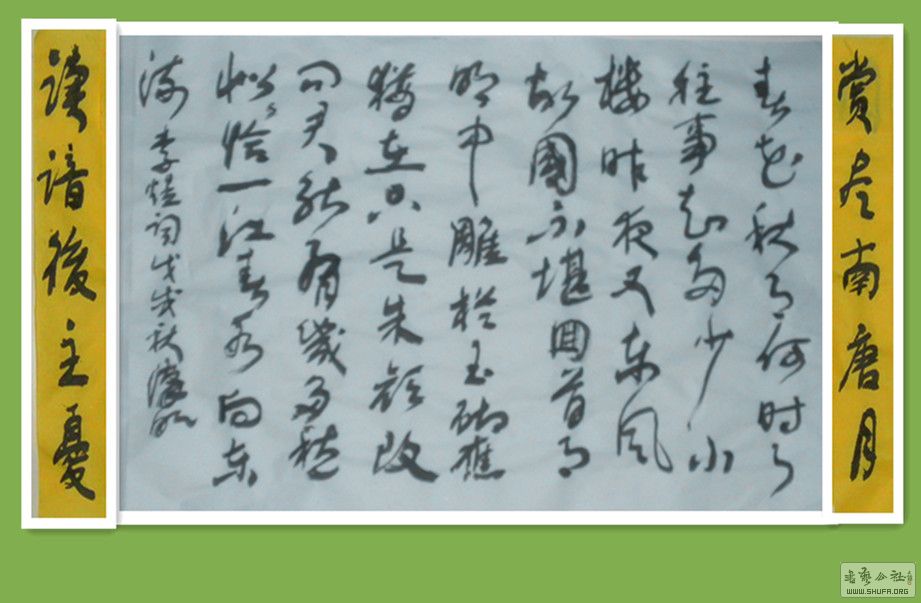 赏尽南唐月
春花秋月何时了
往事知多少小
楼昨夜又东风
故國不堪回首月
明中雕栏玉砌應
猶在只是朱颜改
问君能有幾多愁
似恰一江春水向东
流 李煜词戊戌秋
读谙後主憂
書藝公社
WWW.SHUFA.ORG